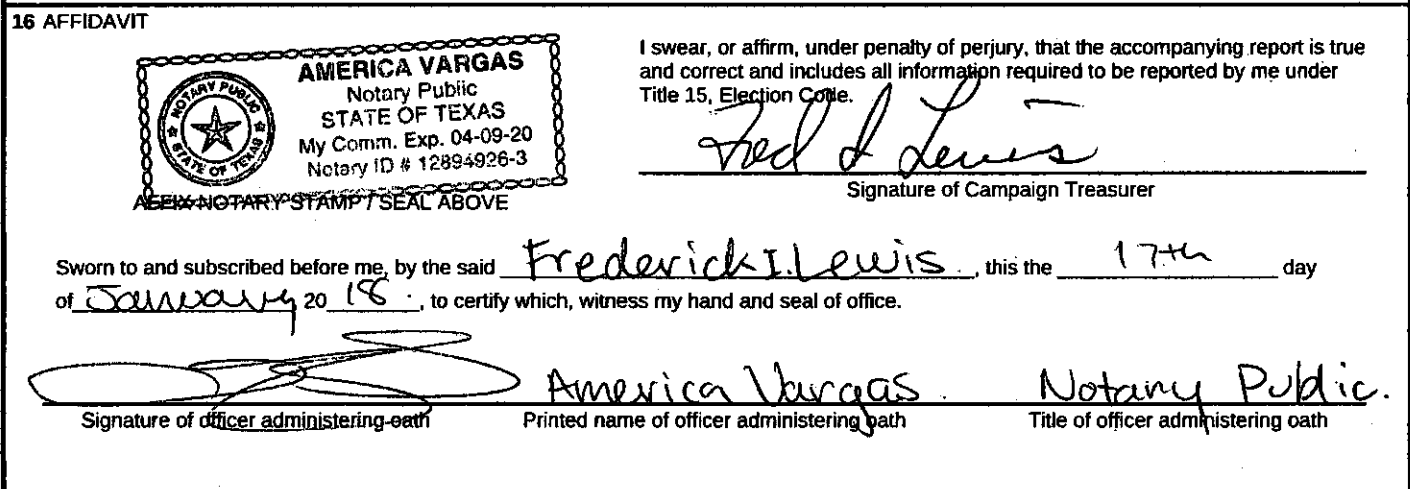 16 AFFIDAVIT
AMERICA VARGAS
Notary Public
STATE OF TEXAS
My Comm. Exp. 04-09-20
Notary ID # 12894926-3
NOTARY PUBLIC
STATE OF TEXAS
AFFIX NOTARY STAMP / SEAL ABOVE
I swear, or affirm, under penalty of perjury, that the accompanying report is true
and correct and includes all information required to be reported by me under
Title 15, Election Code.
Fred I Lewis
Signature of Campaign Treasurer
Sworn to and subscribed before me, by the said Frederick I. Lewis, this the 17th day
of January 20 18., to certify which, witness my hand and seal of office.
America Vargas. Notary Public.
Signature of officer administering oath Printed name of officer administering oath Title of officer administering oath